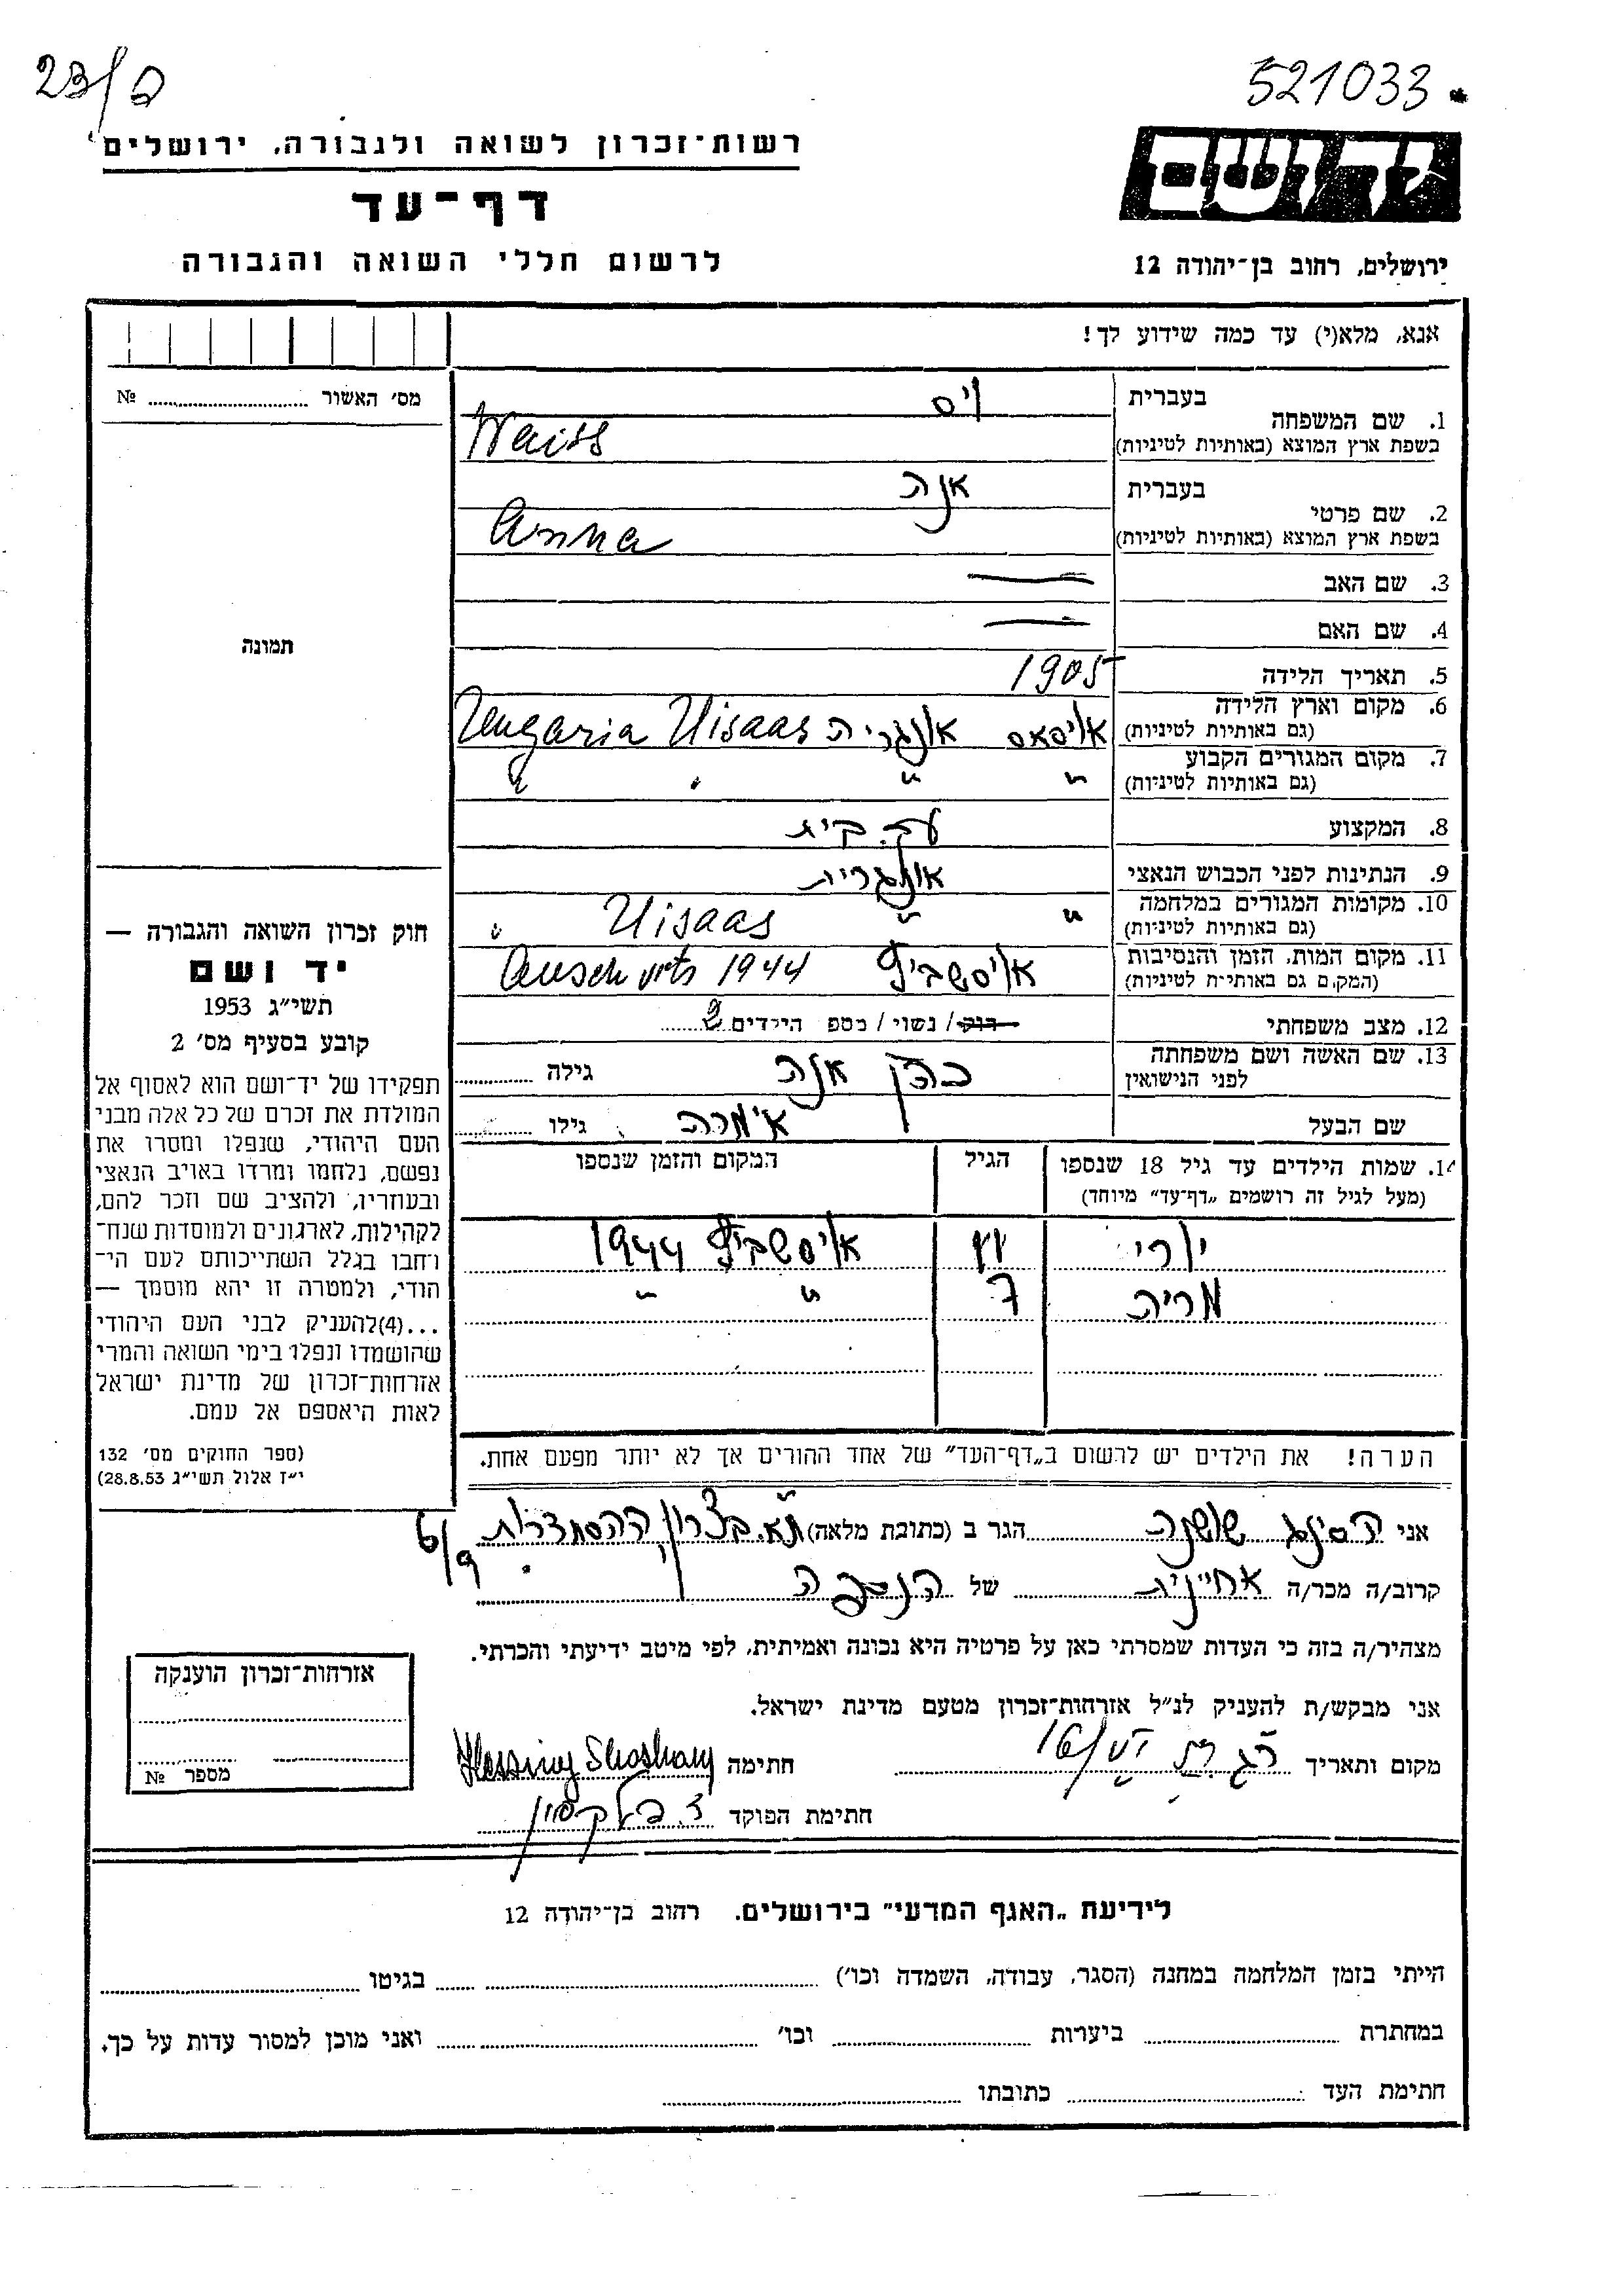 23/ם
521033
רשות-זכרון לשואה ולגבורה, ירושלים
דף-עד
לרשום חללי השואה והגבורה
יד ושם
ירושלים, רחוב בן-יהודה 12
אנא, מלא(י) עד כמה שידוע לך!
מס׳ האשור № ........
תמונה
חוק זכרון השואה והגבורה —
יד ושם
תשי״ג 1953
קובע בסעיף מס׳ 2
תפקידו של יד-ושם הוא לאסוף אל
המולדת את זכרם של כל אלה מבני
העם היהודי, שנפלו ומסרו את
נפשם, נלחמו ומרדו באויב הנאצי
ובעוזריו, ולהציב שם וזכר להם,
לקהילות, לארגונים ולמוסדות שנח־
רחבו בגלל השתייכותם לעם הי־
הודי, ולמטרה זו יהא מוסמך —
...(4)להעניק לבני העם היהודי
שהושמדו ונפלו בימי השואה והמרי
אזרחות-זכרון של מדינת ישראל
לאות היאספם אל עמם.
(ספר החוקים מס׳ 132
י״ז אלול תשי״ג 28.8.53)
בעברית ויס
1. שם המשפחה
בשפת ארץ המוצא (באותיות לטיניות) Waiss
בעברית אנה
2. שם פרטי
בשפת ארץ המוצא (באותיות לטיניות) Anna
3. שם האב —
4. שם האם —
5. תאריך הלידה 1905
6. מקום וארץ הלידה
(גם באותיות לטיניות) אויסאס אונגריה Uisaas Ungaria
7. מקום המגורים הקבוע
(גם באותיות לטיניות) " " " "
8. המקצוע עק. בית
9. הנתינות לפני הכבוש הנאצי אונגרית
10. מקומות המגורים במלחמה
(גם באותיות לטיניות) " " Uisaas "
11. מקום המות, הזמן והנסיבות
(המקום גם באותיות לטיניות) אויסשביץ Auschvits 1944
12. מצב משפחתי רוק/ נשוי / מספ הילדים 2
13. שם האשה ושם משפחתה
לפני הנישואין כהן אנה גילה ........
שם הבעל אימרה גילו ........
14. שמות הילדים עד גיל 18 שנספו הגיל המקום והזמן שנספו
(מעל לגיל זה רושמים „דף-עד״ מיוחד)
יורי אויסשביץ 1944
מריה 7 " "
הערה! את הילדים יש לרשום ב„דף-העד״ של אחד ההורים אך לא יותר מפעם אחת.
אני הסינג שושנה הגר ב (כתובת מלאה) ת״א. בצרון, ההסתדרות
6/9
קרוב/ה מכר/ה אחיינית של הנספה
מצהיר/ה בזה כי העדות שמסרתי כאן על פרטיה היא נכונה ואמיתית, לפי מיטב ידיעתי והכרתי.
אני מבקש/ת להעניק לנ״ל אזרחות-זכרון מטעם מדינת ישראל.
מקום ותאריך חתימה Hessing Shoshany
חתימת הפוקד
אזרחות-זכרון הוענקה
מספר №
לידיעת „האגף המדעי״ בירושלים. רחוב בן-יהודה 12
הייתי בזמן המלחמה במחנה (הסגר, עבודה, השמדה וכו׳) ........ בגיטו ........
במחתרת ........ ביערות ........ וכו׳ ........ ואני מוכן למסור עדות על כך.
חתימת העד ........ כתובתו ........